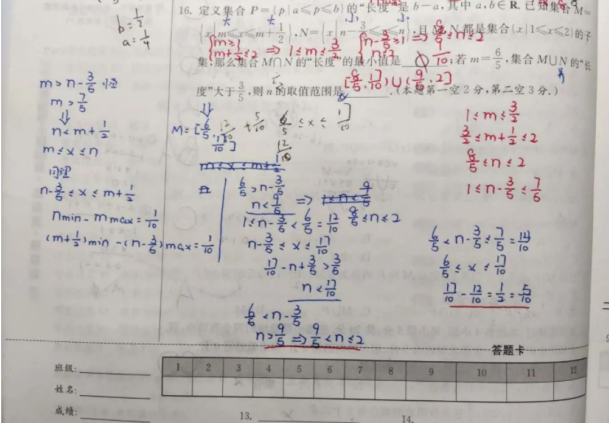 b=1/2
a=1/4
16. 定义集合 P={p|a≤p≤b}的“长度”是 b-a, 其中 a,b∈R. 已知集合 M=
{x|m≤x≤m+1/2}, N={x|n-3/5≤x≤n}, 且 M,N 都是集合{x|1≤x≤2}的子
集, 那么集合 M∩N 的“长度”的最小值是 1/10; 若 m=6/5, 集合 M∪N 的“长
度”大于3/5, 则 n 的取值范围是 . (本题第一空 2 分, 第二空 3 分.)
{m≥1
m+1/2≤2 ⇒ 1≤m≤3/2
{n-3/5≥1 ⇒ 8/5≤n≤2
[8/5,17/10)∪(9/5,2]
m>n-3/5
m>7/5
⇓
n<m+1/2
m≤x≤n
同理
n-3/5≤x≤m+1/2
nmin-mmax=1/10
(m+1/2)min-(n-3/5)max=1/10
M=[6/5,17/10]
6/5>n-3/5
n<9/5
1≤n-3/5<6/5=12/10 8/5≤n≤2
n-3/5≤x≤17/10
17/10-n+3/5>3/5
n<17/10
6/5<n-3/5
n>9/5⇒9/5<n≤2
1≤m≤3/2
3/2≤m+1/2≤2
8/5≤n≤2
1≤n-3/5≤7/5
6/5<n-3/5≤7/5=14/10
6/5≤x≤17/10
17/10-12/10=1/2=5/10
答题卡
班级:
1 2 3 4 5 6 7 8 9 10 11 12
姓名:
成绩:
13. 14.